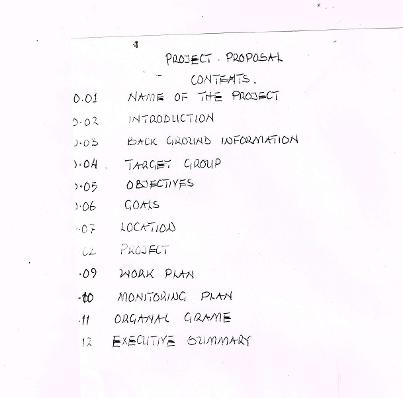 PROJECT. PROPOSAL
CONTENTS.
0.01 NAME OF THE PROJECT
0.02 INTRODUCTION
0.03 BACK GROUND INFORMATION
0.04 TARGET GROUP
0.05 OBJECTIVES
0.06 GOALS
.07 LOCATION
PROJECT
.09 WORK PLAN
.10 MONITORING PLAN
.11 ORGANAL GRAME
12 EXECUTIVE SUMMARY